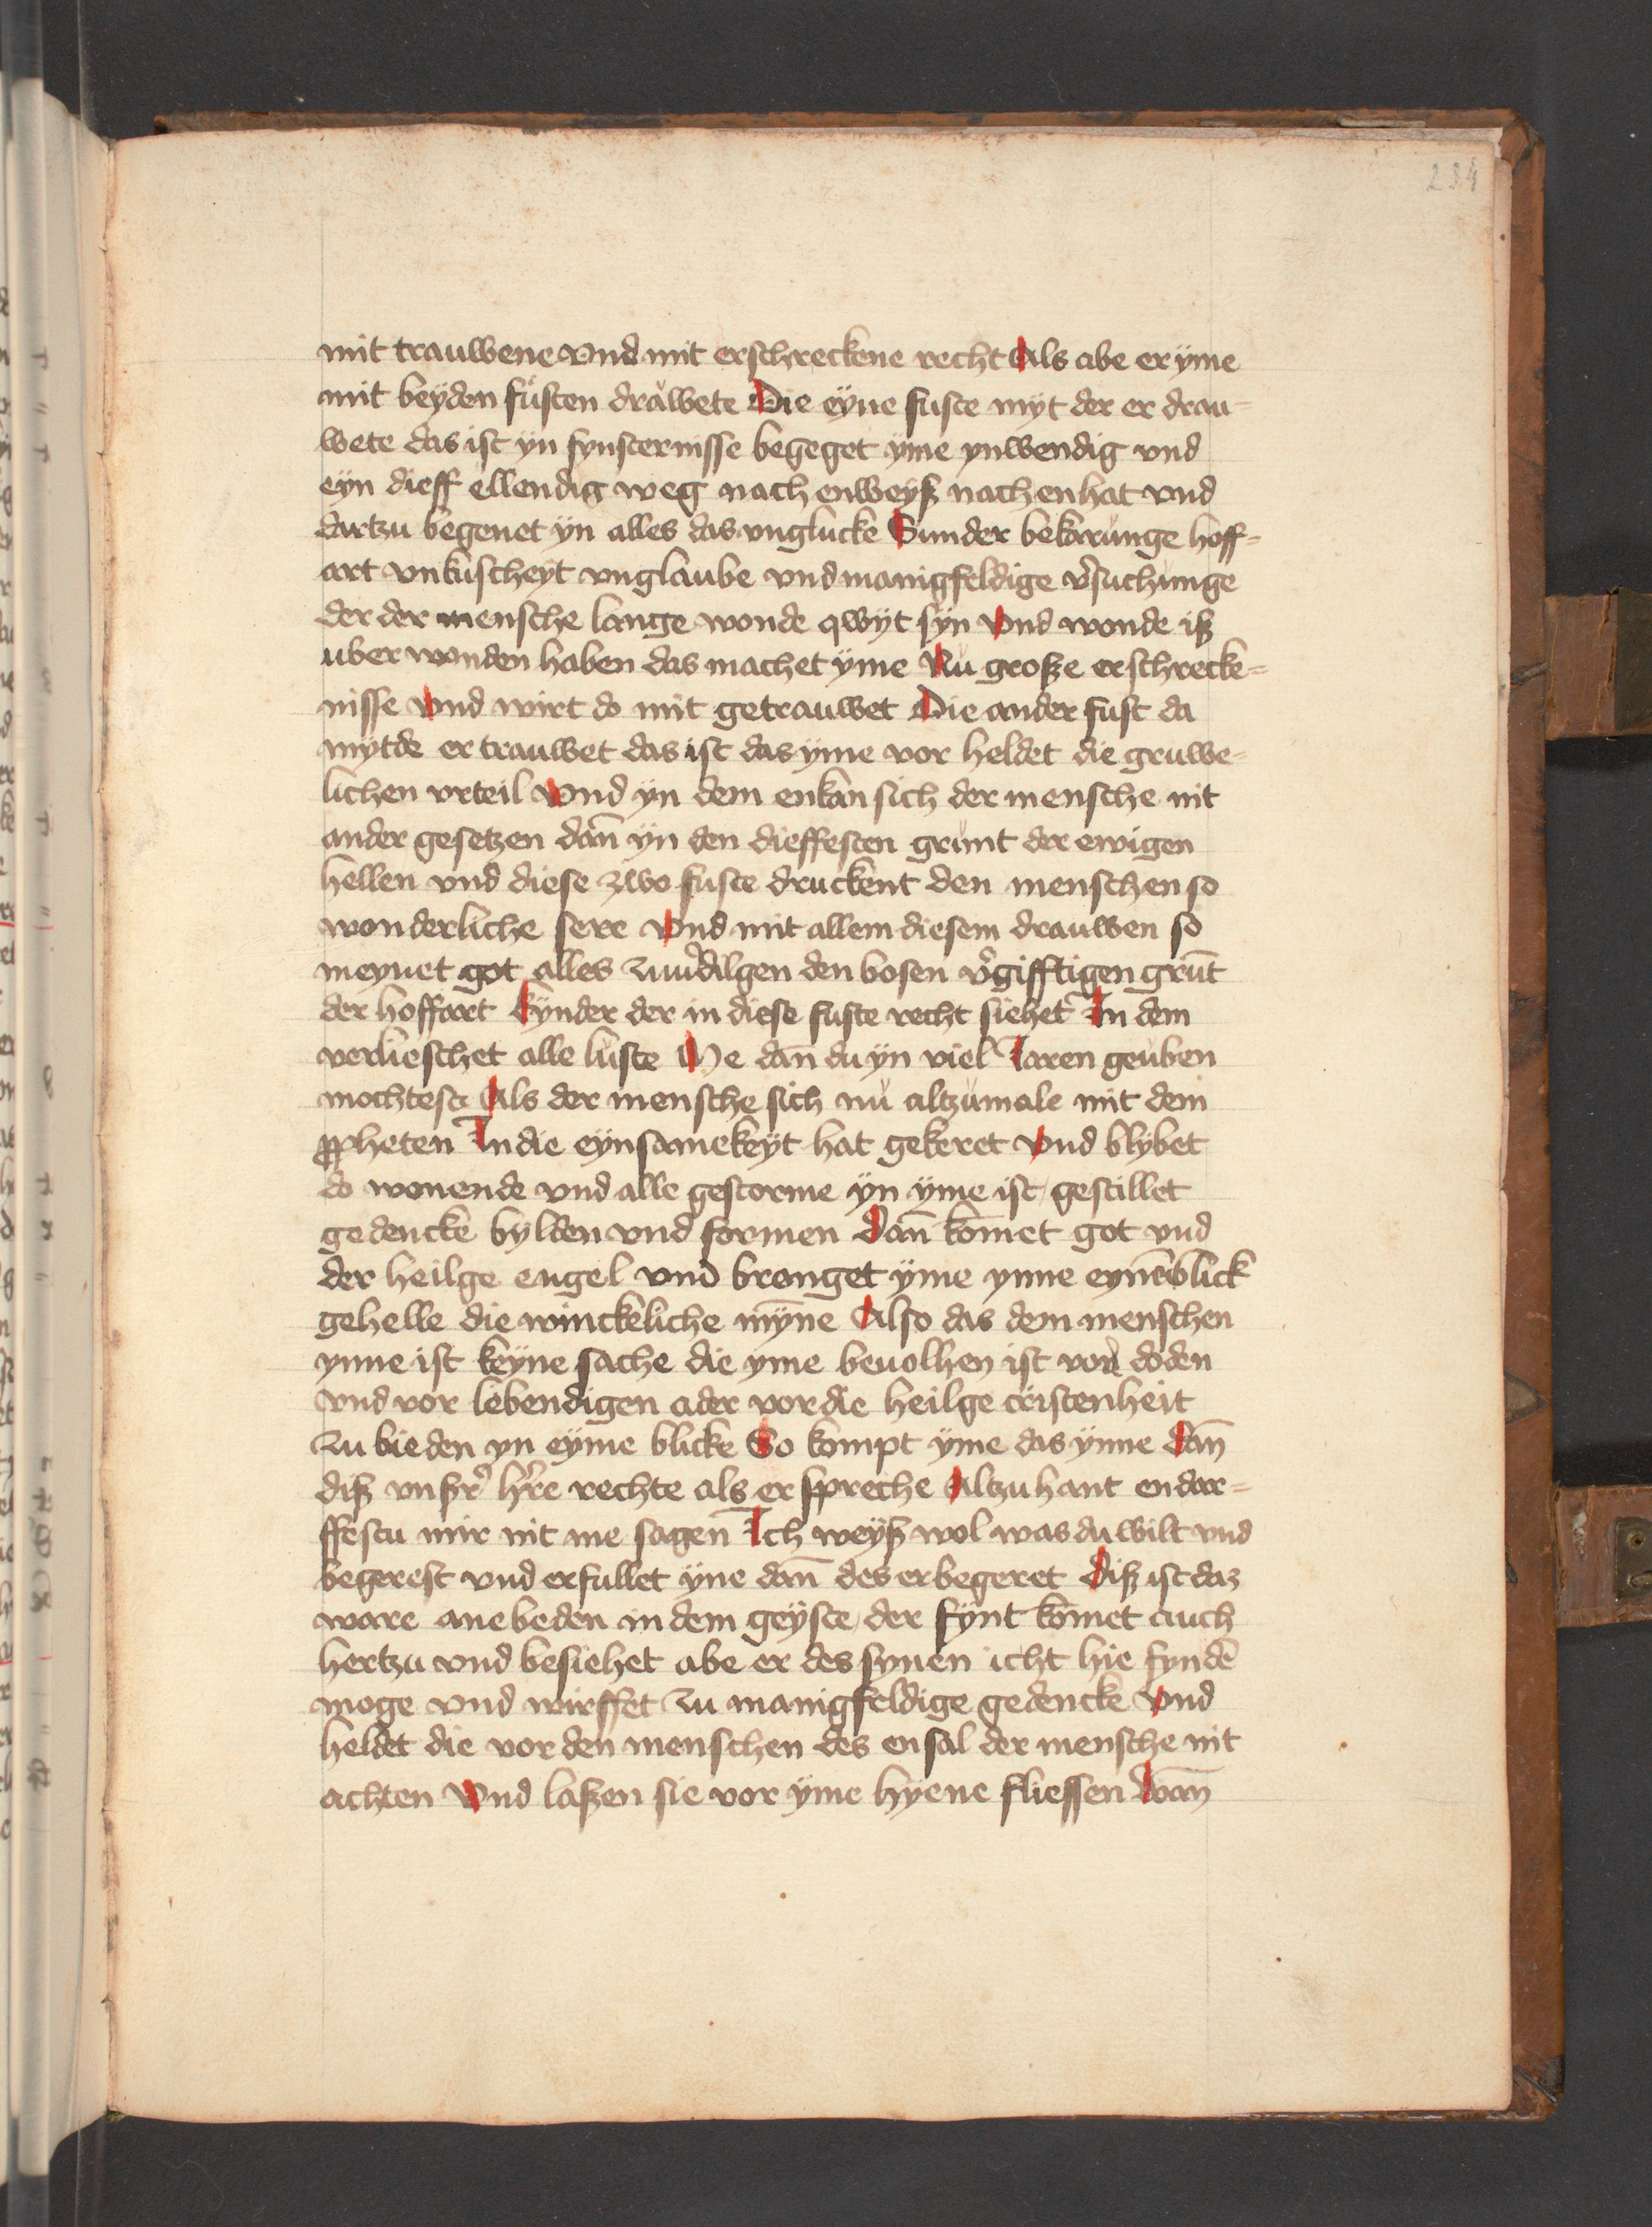 234
mit trauwene vnd mit erschreckene recht Als abe er ÿme
mit beÿden fůsten dràwete Die eÿne fuste mÿt der er drau-
wete das ist ÿn fynsternisse begeget ÿme ynwendig vnd
eÿn dieff ellendig weg nach enweÿß nach enhat vnd
dartzu begenet ÿn alles das vnglucke Sunder bekarŭnge hoff-
art vnkŭscheÿt vnglaube vnd manigfeldige v̉suchunge
der der mensche lange wonde qwÿt sÿn Vnd wonde iß
uber wonden haben das machet ÿme Nŭ große erschrecke-
nisse Vnd wirt do mit getrauwet Die ander fust da
mÿtde er trauwet das ist das ÿme vor heldet die gruwe-
lichen vrteil Vnd ÿn dem enkan sich der mensche nit
ander gesetzen dan̄ ÿn den dieffesten grŭnt der ewigen
hellen vnd diese zwo fuste druckent den menschen so
wonderliche sere Vnd mit allem diesem drauwen so
meynet got alles zuuͦ̉dilgen den bosen v̉gifftigen grūt
der hoffart Synder der in diese fuste recht siehet In dem
verlieschet alle lŭste Me dan̄ du ÿn viel Iaren geŭben
mochtest Als der mensche sich nŭ altzŭmale mit dem
ꝓpheten In die eÿnsamekeÿt hat gekeret Vnd blÿbet
do wonende vnd alle gestorme ÿn ÿme ist gestillet
gedencke bylden vnd formen Dan̄ kōmet got vnd
der heilge engel vnd brenget ÿme ynne eynēblick
gehelle die winckeliche mȳne Also das dem menschen
ynne ist keÿne sache die yme beuolhen ist vor doden
vnd vor lebendigen ader vor die heilge cristenheit
zu bieden yn eÿme blicke So kompt ÿme das ÿnne Dan̄
diß vnßr̉ hr̉e rechte als er spreche Altzuhant endar-
ffestu mir nit me sagen Ich weÿß wol was du wilt vnd
begerest vnd erfullet ÿne dan̄ des er begeret Diß ist daz
ware anebeden in dem geÿste der fÿnt kōmet auch
hertzu vnd besiehet abe er des synen icht hie fyndē
moge vnd wirffet zu manigfeldige gedencke Vnd
heldet die vor den menschen des ensal der mensche nit
achten Vnd laßen sie vor ÿme hÿene fliessen Wan̄